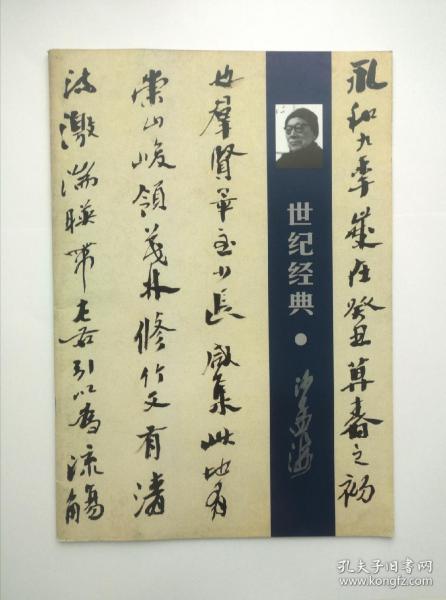 永和九年歲在癸丑莫春之初
世纪经典·
沙孟海
也羣賢畢至少長咸集此地有
崇山峻領茂林脩竹又有清
流激湍暎帶左右引以為流觴
孔夫子旧书网
www.kongfz.com